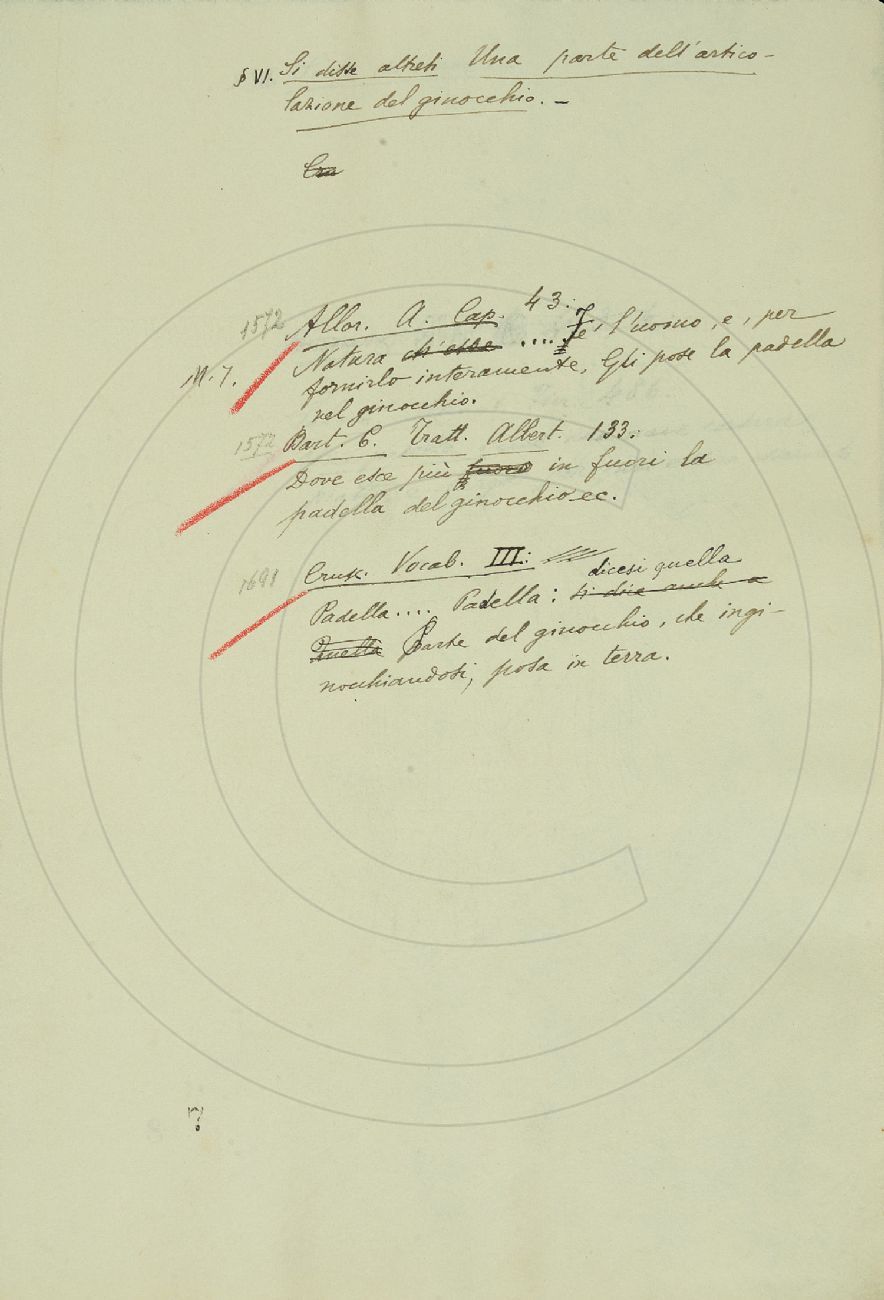 § VI. Si disse altresì Una parte dell'artico-
lazione del ginocchio. –
Cru
1572 Allor. A. Cap. 43:
M. 7. Natura ch'esse .... Fe', l'uomo, e, per
fornirlo interamente, Gli pose la padella
nel ginocchio.
1572 Bart. C. Tratt. Albert. 133:
Dove esce più fuora in fuori la
padella del ginocchio ec.
1691 Crusc. Vocab. III:
dicesi quella
Padella.... Padella: si dice anche a
Quella Parte del ginocchio, che ingi-
nocchiandosi, posa in terra.
?